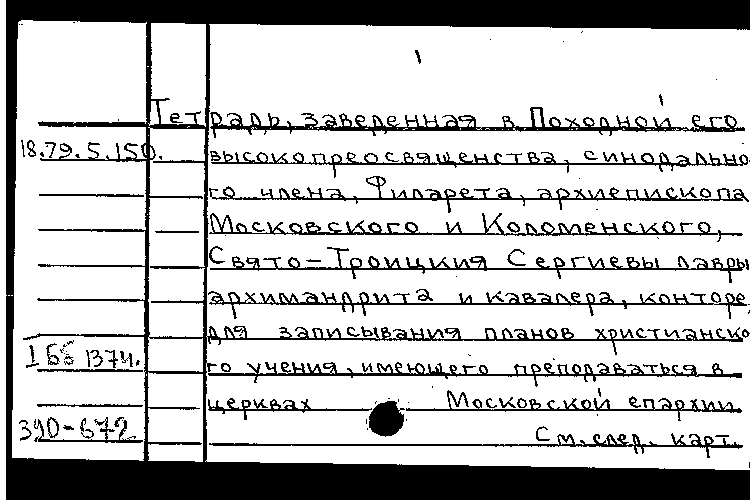 Тетрадь, заведенная в Походной его
18.79.5.150. высокопреосвященства, синодально
го члена, Филарета, архиепископа
Московского и Коломенского,
Свято-Троицкия Сергиевы лавры
архимандрита и кавалера, конторе,
для записывания планов христианско
го учения, имеющего преподаваться в
церквах Московской епархии.
390-672 См. след. карт.